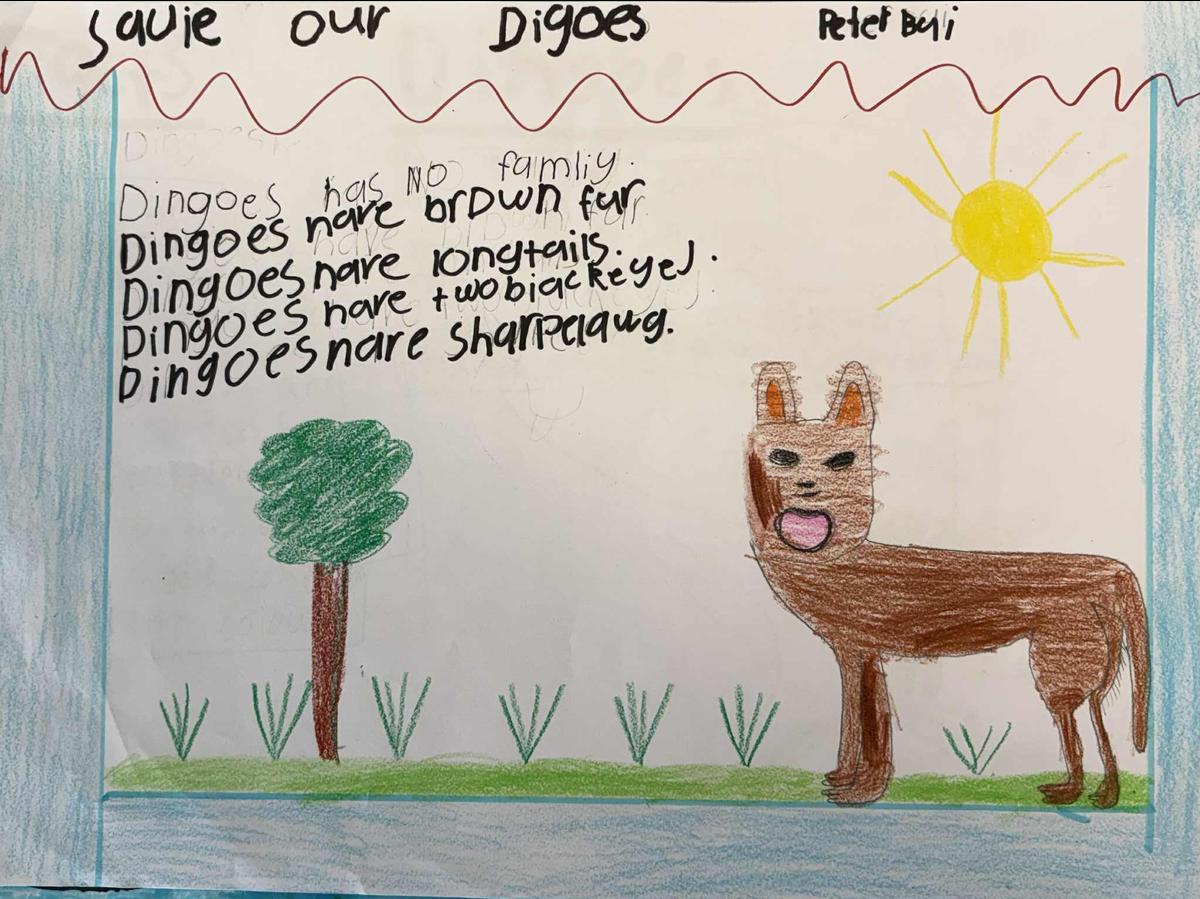 Savie our Digoes Peter Bali
Dingoes
Dingoes has No famliy.
Dingoes nare brown fur
Dingoes nare longtails.
Dingoes nare two biackeyes.
Dingoes nare sharp